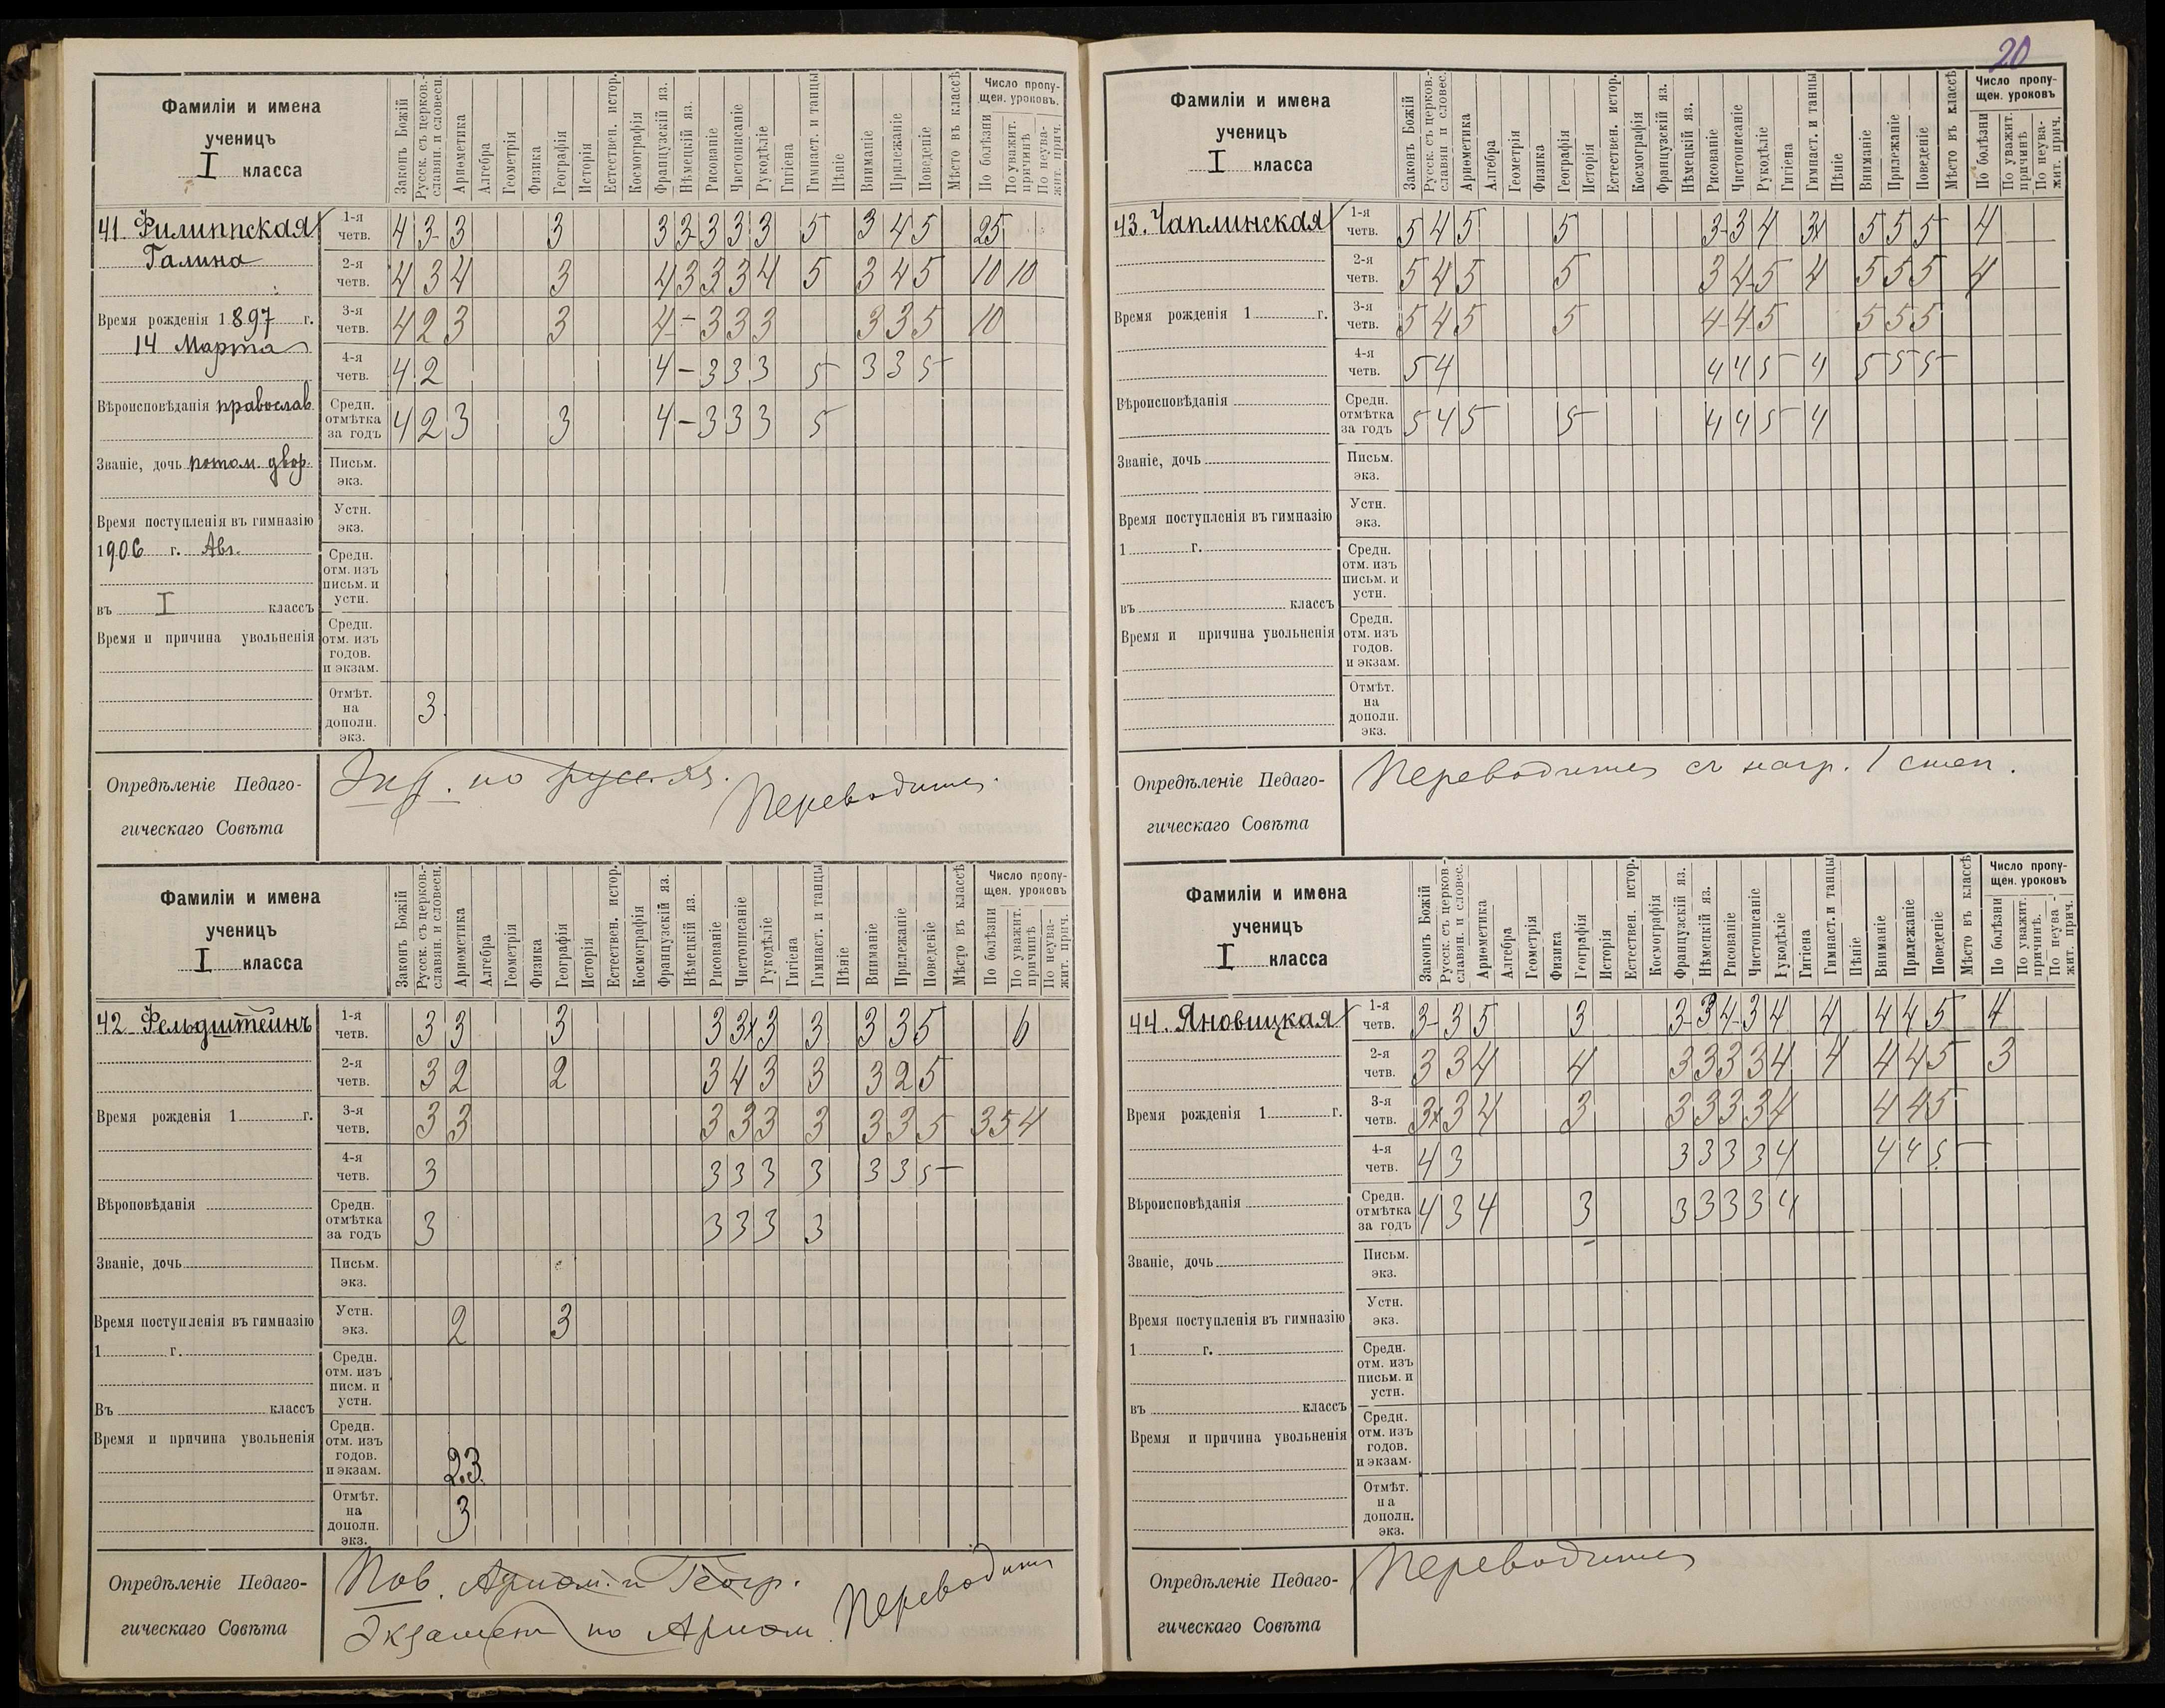 20
Фамиліи и имена
ученицъ
I класса
Законъ Божій
Русск. съ церков.-
славян. и словесн.
Ариѳметика
Алгебра
Геометрія
Физика
Географія
Исторія
Естествен. истор.
Космографія
Французскій яз.
Нѣмецкій яз.
Рисованіе
Чистописаніе
Рукодѣліе
Гигіена
Гимнаст. и танцы
Пѣніе
Вниманіе
Прилежаніе
Поведеніе
Мѣсто въ классѣ
Число пропу-
щен. уроковъ.
По болѣзни
По уважит.
причинѣ
По неува-
жит. прич.
41. Филиппская
Галина
Время рожденія 1897 г.
14 Марта
Вѣроисповѣданія православ.
Званіе, дочь потом. двор.
Время поступленія въ гимназію
1906 г. Авг.
въ I классъ
Время и причина увольненія
1-я четв. 4 3 3 3 3 3 3 3 3 5 3 4 5 25
2-я четв. 4 3 4 3 4 3 3 3 4 5 3 4 5 10 10
3-я четв. 4 2 3 3 4 - 3 3 3 3 3 5 10
4-я четв. 4 2 4 - 3 3 3 5 3 3 5
Средн. отмѣтка за годъ 4 2 3 3 4 - 3 3 3 5
Письм. экз.
Устн. экз.
Средн. отм. изъ письм. и устн.
Средн. отм. изъ годов. и экзам.
Отмѣт. на дополн. экз. 3
Опредѣленіе Педаго-
гическаго Совѣта
Экз. по русс. яз.
Переводится
Фамиліи и имена
ученицъ
I класса
Законъ Божій
Русск. съ церков.-
славян. и словесн.
Ариѳметика
Алгебра
Геометрія
Физика
Географія
Исторія
Естествен. истор.
Космографія
Французскій яз.
Нѣмецкій яз.
Рисованіе
Чистописаніе
Рукодѣліе
Гигіена
Гимнаст. и танцы
Пѣніе
Вниманіе
Прилежаніе
Поведеніе
Мѣсто въ классѣ
Число пропу-
щен. уроковъ
По болѣзни
По уважит.
причинѣ
По неува-
жит. прич.
42. Фельдштейнъ
Время рожденія 1 г.
Вѣроповѣданія
Званіе, дочь
Время поступленія въ гимназію
1 г.
Въ классъ
Время и причина увольненія
1-я четв. 3 3 3 3 3 3 3 3 3 5 6
2-я четв. 3 2 2 3 4 3 3 3 2 5
3-я четв. 3 3 3 3 3 3 3 3 5 35 4
4-я четв. 3 3 3 3 3 3 3 5
Средн. отмѣтка за годъ 3 3 3 3 3
Письм. экз.
Устн. экз. 2 3
Средн. отм. изъ писм. и устн.
Средн. отм. изъ годов. и экзам. 2.3.
Отмѣт. на дополн. экз. 3
Опредѣленіе Педаго-
гическаго Совѣта
Пов. Ариѳм. и Геогр.
Экзамен по Ариѳм.
Переводится
Фамиліи и имена
ученицъ
I класса
Законъ Божій
Русск. съ церков.-
славян и словес.
Ариѳметика
Алгебра
Геометрія
Физика
Географія
Исторія
Естествен. истор.
Космографія
Французскій яз.
Нѣмецкій яз.
Рисованіе
Чистописаніе
Рукодѣліе
Гигіена
Гимнаст. и танцы
Пѣніе
Вниманіе
Прилежаніе
Поведеніе
Мѣсто въ классѣ
Число пропу-
щен. уроковъ
По болѣзни
По уважит.
причинѣ
По неува-
жит. прич.
43. Чаплинская
Время рожденія 1 г.
Вѣроисповѣданія
Званіе, дочь
Время поступленія въ гимназію
1 г.
въ классъ
Время и причина увольненія
1-я четв. 5 4 5 5 3 3 4 3 5 5 5 4
2-я четв. 5 4 5 5 3 4 5 4 5 5 5 4
3-я четв. 5 4 5 5 4 4 5 5 5 5
4-я четв. 5 4 4 4 5 4 5 5 5
Средн. отмѣтка за годъ 5 4 5 5 4 4 5 4
Письм. экз.
Устн. экз.
Средн. отм. изъ письм. и устн.
Средн. отм. изъ годов. и экзам.
Отмѣт. на дополн. экз.
Опредѣленіе Педаго-
гическаго Совѣта
Переводится съ нагр. 1 степ.
Фамиліи и имена
ученицъ
I класса
Законъ Божій
Русск. съ церков.-
славян. и словес.
Ариѳметика
Алгебра
Геометрія
Физика
Географія
Исторія
Естествен. истор.
Космографія
Французскій яз.
Нѣмецкій яз.
Рисованіе
Чистописаніе
Рукодѣліе
Гигіена
Гимнаст. и танцы
Пѣніе
Вниманіе
Прилежаніе
Поведеніе
Мѣсто въ классѣ
Число пропу-
щен. уроковъ
По болѣзни
По уважит.
причинѣ.
По неува-
жит. прич.
44. Яновицкая
Время рожденія 1 г.
Вѣроисповѣданія
Званіе, дочь
Время поступленія въ гимназію
1 г.
въ классъ
Время и причина увольненія
1-я четв. 3 3 5 3 3 3 4 3 4 4 4 4 5 4
2-я четв. 3 3 4 4 3 3 3 3 4 4 4 4 5 3
3-я четв. 3 3 4 3 3 3 3 3 4 4 4 5
4-я четв. 4 3 3 3 3 3 4 4 4 5
Средн. отмѣтка за годъ 4 3 4 3 3 3 3 3 4
Письм. экз.
Устн. экз.
Средн. отм. изъ письм. и устн.
Средн. отм. изъ годов. и экзам.
Отмѣт. на дополн. экз.
Опредѣленіе Педаго-
гическаго Совѣта
Переводится